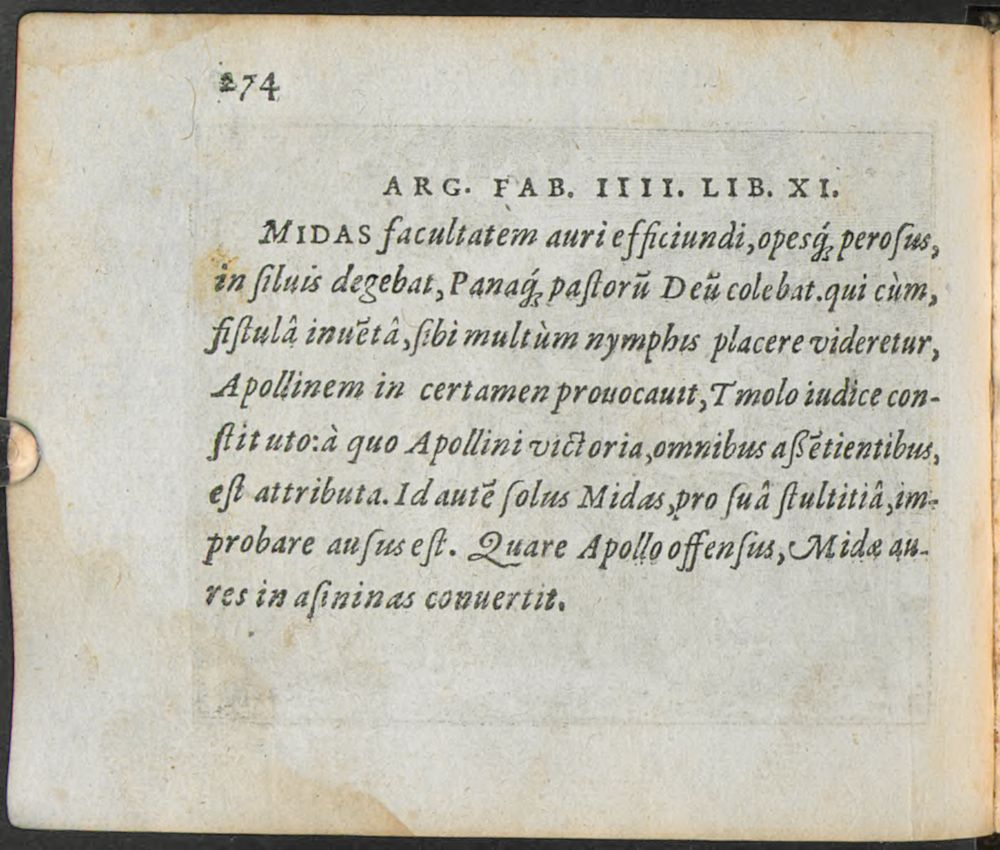 274
ARG. FAB. IIII. LIB. XI.
MIDAS facultatem auri efficiundi, opesq́; perosus,
in siluis degebat, Panaq́; pastorũ Deũ colebat. qui cùm,
fistulâ inuẽtâ, sibi multùm nymphis placere videretur,
Apollinem in certamen prouocauit, Tmolo iudice con-
stituto: à quo Apollini victoria, omnibus aßẽtientibus,
est attributa. Id autẽ solus Midas, pro suâ stultitiâ, im-
probare ausus est. Quare Apollo offensus, Midæ au-
res in asininas conuertit.